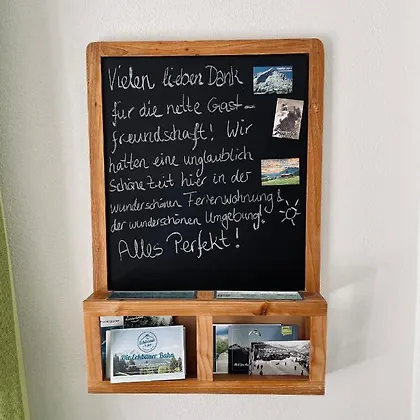 Vielen lieben Dank
für die nette Gast-
freundschaft! Wir
hatten eine unglaublich
schöne Zeit hier in der
wunderschönen Ferienwohnung &
der wunderschönen Umgebung!
Alles Perfekt!
Die Eckbauer Bahn